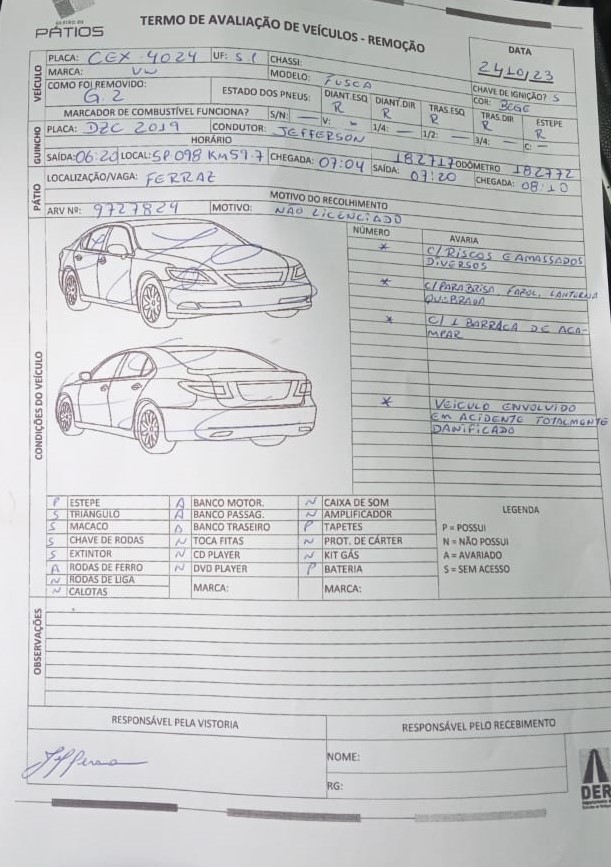 PÁTIOS
TERMO DE AVALIAÇÃO DE VEÍCULOS - REMOÇÃO
DATA
24/10/23
VEÍCULO
PLACA: CEX 4024 UF: S.P CHASSI:
MARCA: VW MODELO: FUSCA
CHAVE DE IGNIÇÃO? S
COMO FOI REMOVIDO: G.2
ESTADO DOS PNEUS: DIANT.ESQ R DIANT.DIR R TRAS.ESQ R TRAS.DIR R ESTEPE R
COR: BEGE
MARCADOR DE COMBUSTÍVEL FUNCIONA? S/N: — V: - 1/4: — 1/2: — 3/4: — C: —
GUINCHO
PLACA: DZC 2019 CONDUTOR: JEFFERSON
HORÁRIO
ODÔMETRO
SAÍDA: 06:20 LOCAL: SP 098 KM 59.7 CHEGADA: 07:04 SAÍDA: 182717 07:20 CHEGADA: 182772 08:10
PÁTIO
LOCALIZAÇÃO/VAGA: FERRAZ
MOTIVO DO RECOLHIMENTO
ARV Nº: 9727824 MOTIVO: NÃO LICENCIADO
CONDIÇÕES DO VEÍCULO
NÚMERO AVARIA
* C/ RISCOS E AMASSADOS
DIVERSOS
* C/ PARABRISA, FAROL, LANTERNA
QUEBRADA
* C/ 1 BARRACA DE ACA-
MPAR
* VEICULO ENVOLVIDO
EM ACIDENTE TOTALMENTE
DANIFICADO
P ESTEPE A BANCO MOTOR. N CAIXA DE SOM
S TRIANGULO A BANCO PASSAG. N AMPLIFICADOR
S MACACO A BANCO TRASEIRO P TAPETES
S CHAVE DE RODAS N TOCA FITAS N PROT. DE CÁRTER
S EXTINTOR N CD PLAYER N KIT GÁS
A RODAS DE FERRO N DVD PLAYER P BATERIA
N RODAS DE LIGA MARCA: MARCA:
N CALOTAS
LEGENDA
P = POSSUI
N = NÃO POSSUI
A = AVARIADO
S = SEM ACESSO
OBSERVAÇÕES
RESPONSÁVEL PELA VISTORIA RESPONSÁVEL PELO RECEBIMENTO
NOME:
RG:
DER